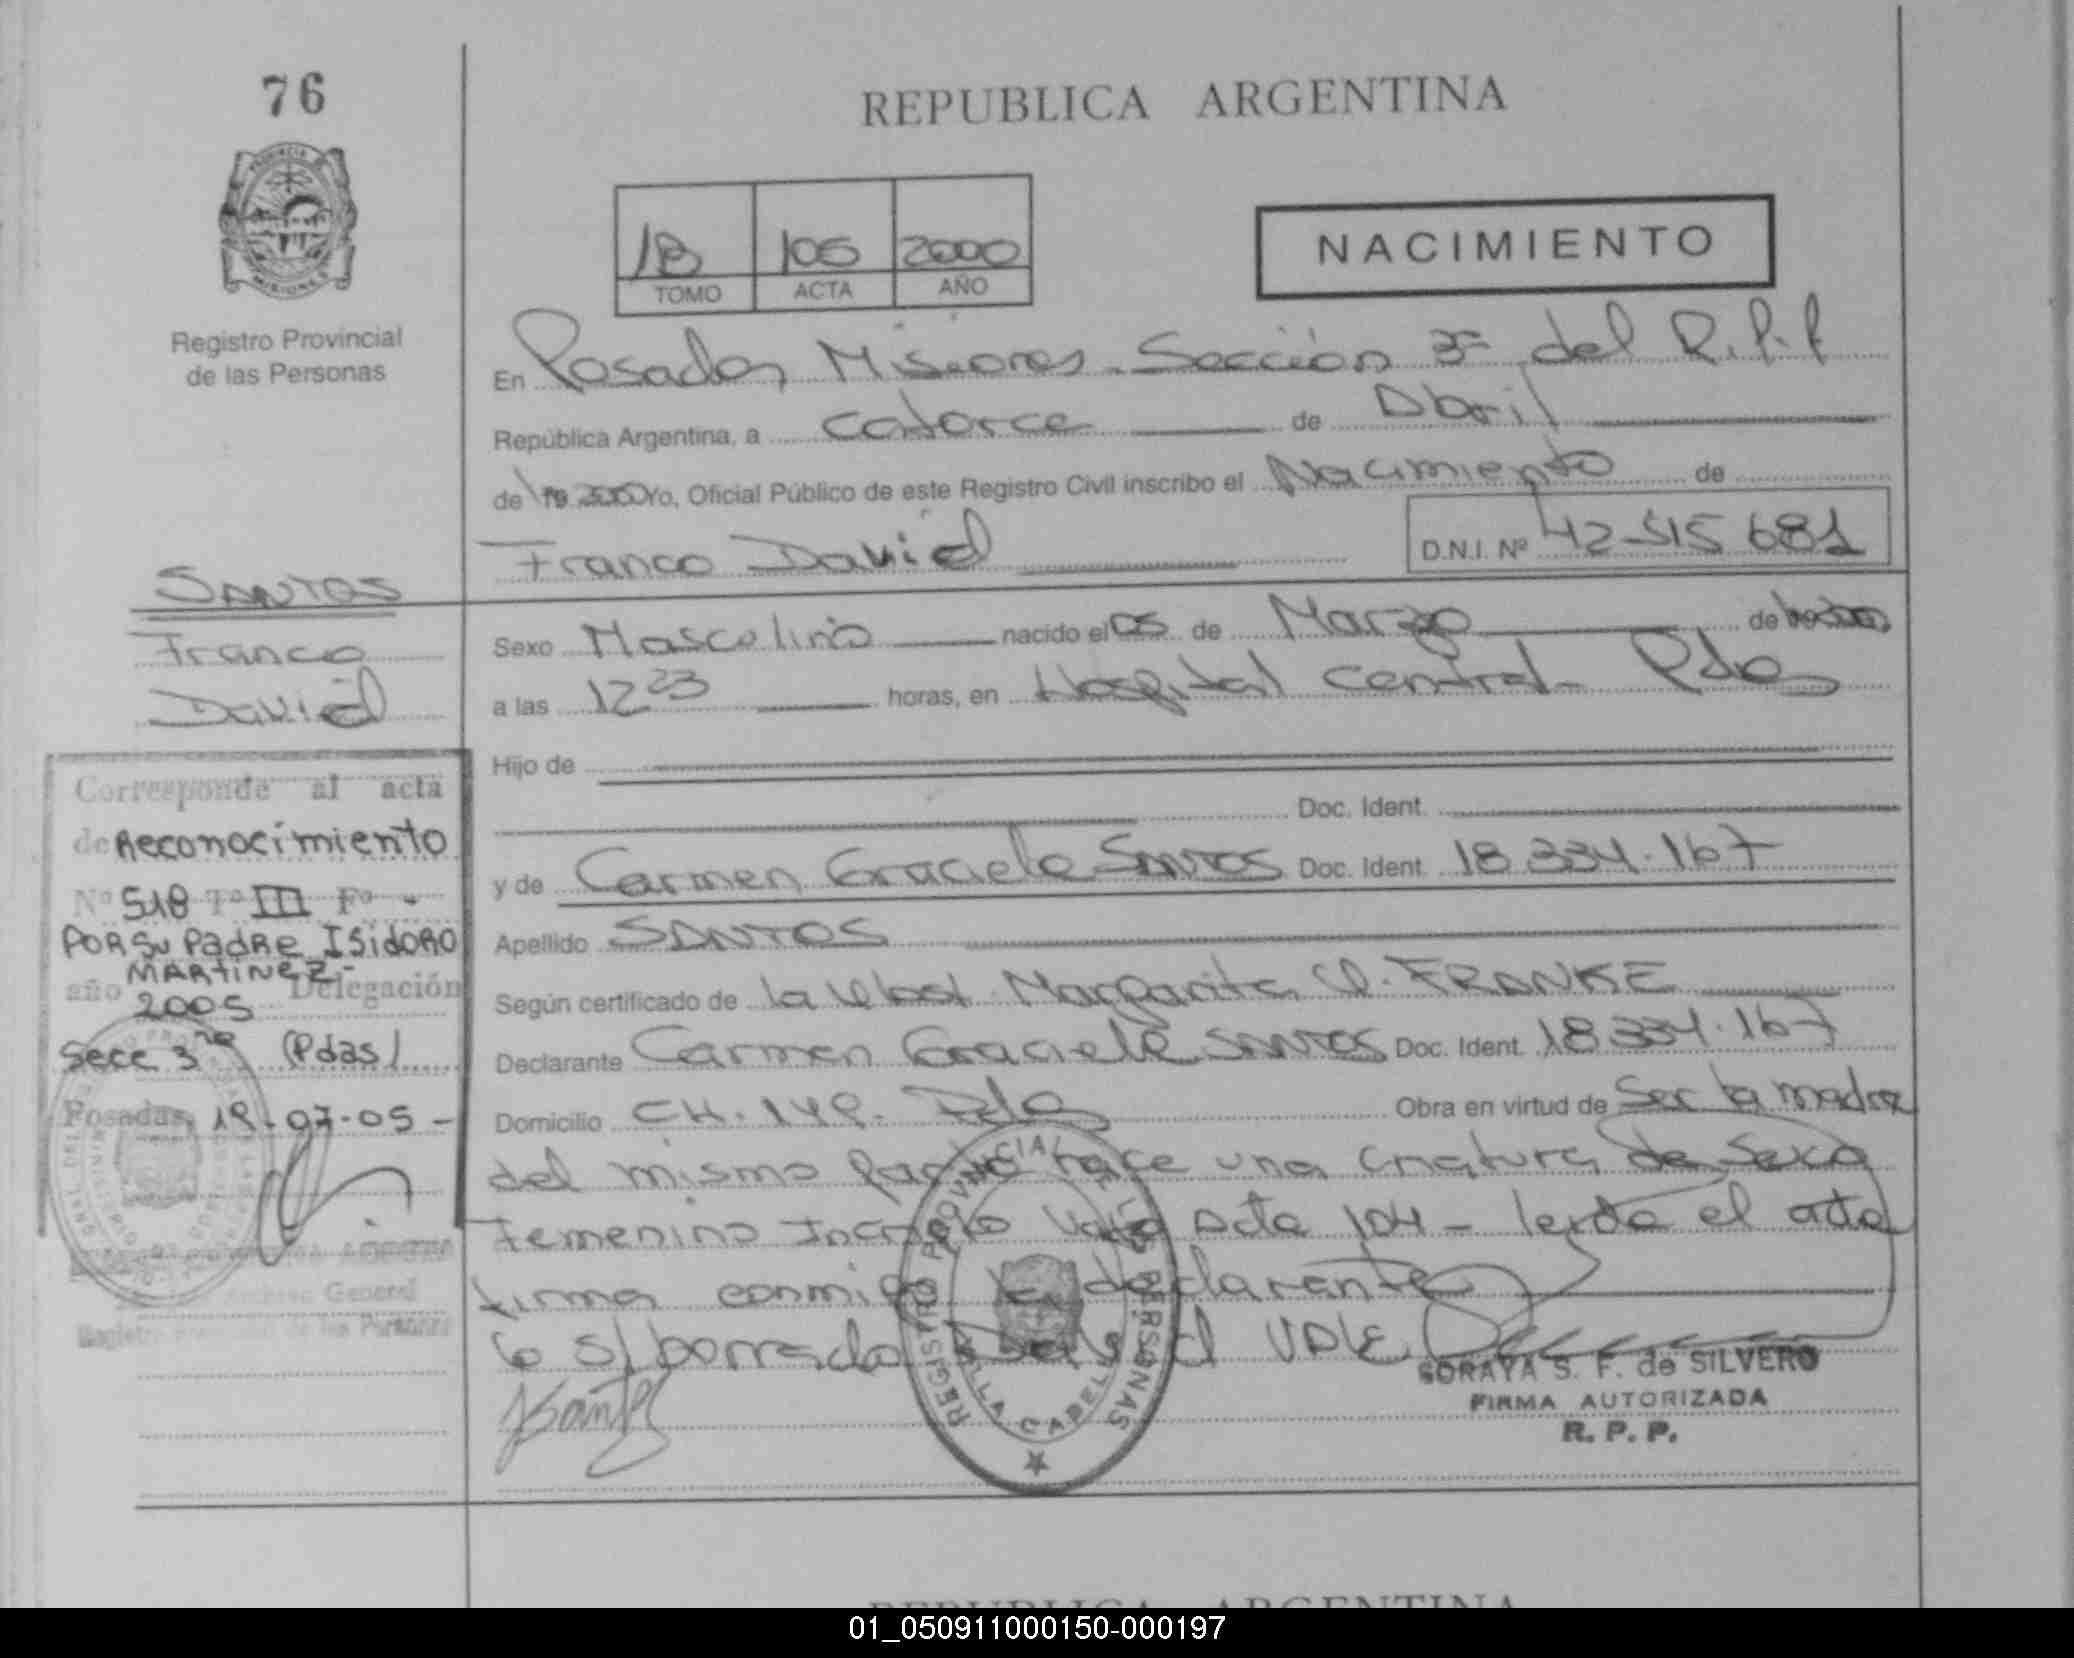 76
REPUBLICA ARGENTINA
PROVINCIA DE
MISIONES
1B 105 2000
TOMO ACTA AÑO
NACIMIENTO
Registro Provincial
de las Personas
En Posadas Misiones Sección 3ª del R.P.P
República Argentina, a catorce de Abril
de 19 2000 Yo, Oficial Público de este Registro Civil inscribo el Nacimiento de
Franco David
D.N.I. Nº 42 515 681
SANTOS
Franco
David
Sexo Masculino nacido el 05 de Marzo de
a las 12 23 horas, en Hospital Central Pdas
Hijo de
Doc. Ident.
y de Carmen Graciela SANTOS Doc. Ident. 18 334.167
Apellido SANTOS
Según certificado de la Obst. Margarita FRANKE
Declarante Carmen Graciela SANTOS Doc. Ident. 18 334.167
Domicilio CH. 149. Pdas Obra en virtud de Ser la madre
del mismo parto nace una criatura de Sexo
Femenino Acta 104 - leida el acta
firma conmigo la declarante
s/borrado VALE
SORAYA S. F. de SILVERO
FIRMA AUTORIZADA
R. P. P.
REGISTRO PROVINCIAL DE LAS PERSONAS
VILLA CABELLO
Corresponde al acta
de Reconocimiento
Nº 518 Tº III Fº -
POR SU PADRE ISIDORO
MARTINEZ-
año 2005 Delegación
Secc 3ra (Pdas)
Posadas, 19-07-05-
Archivo General
Registro Provincial de las Personas
REPUBLICA ARGENTINA
01_050911000150-000197